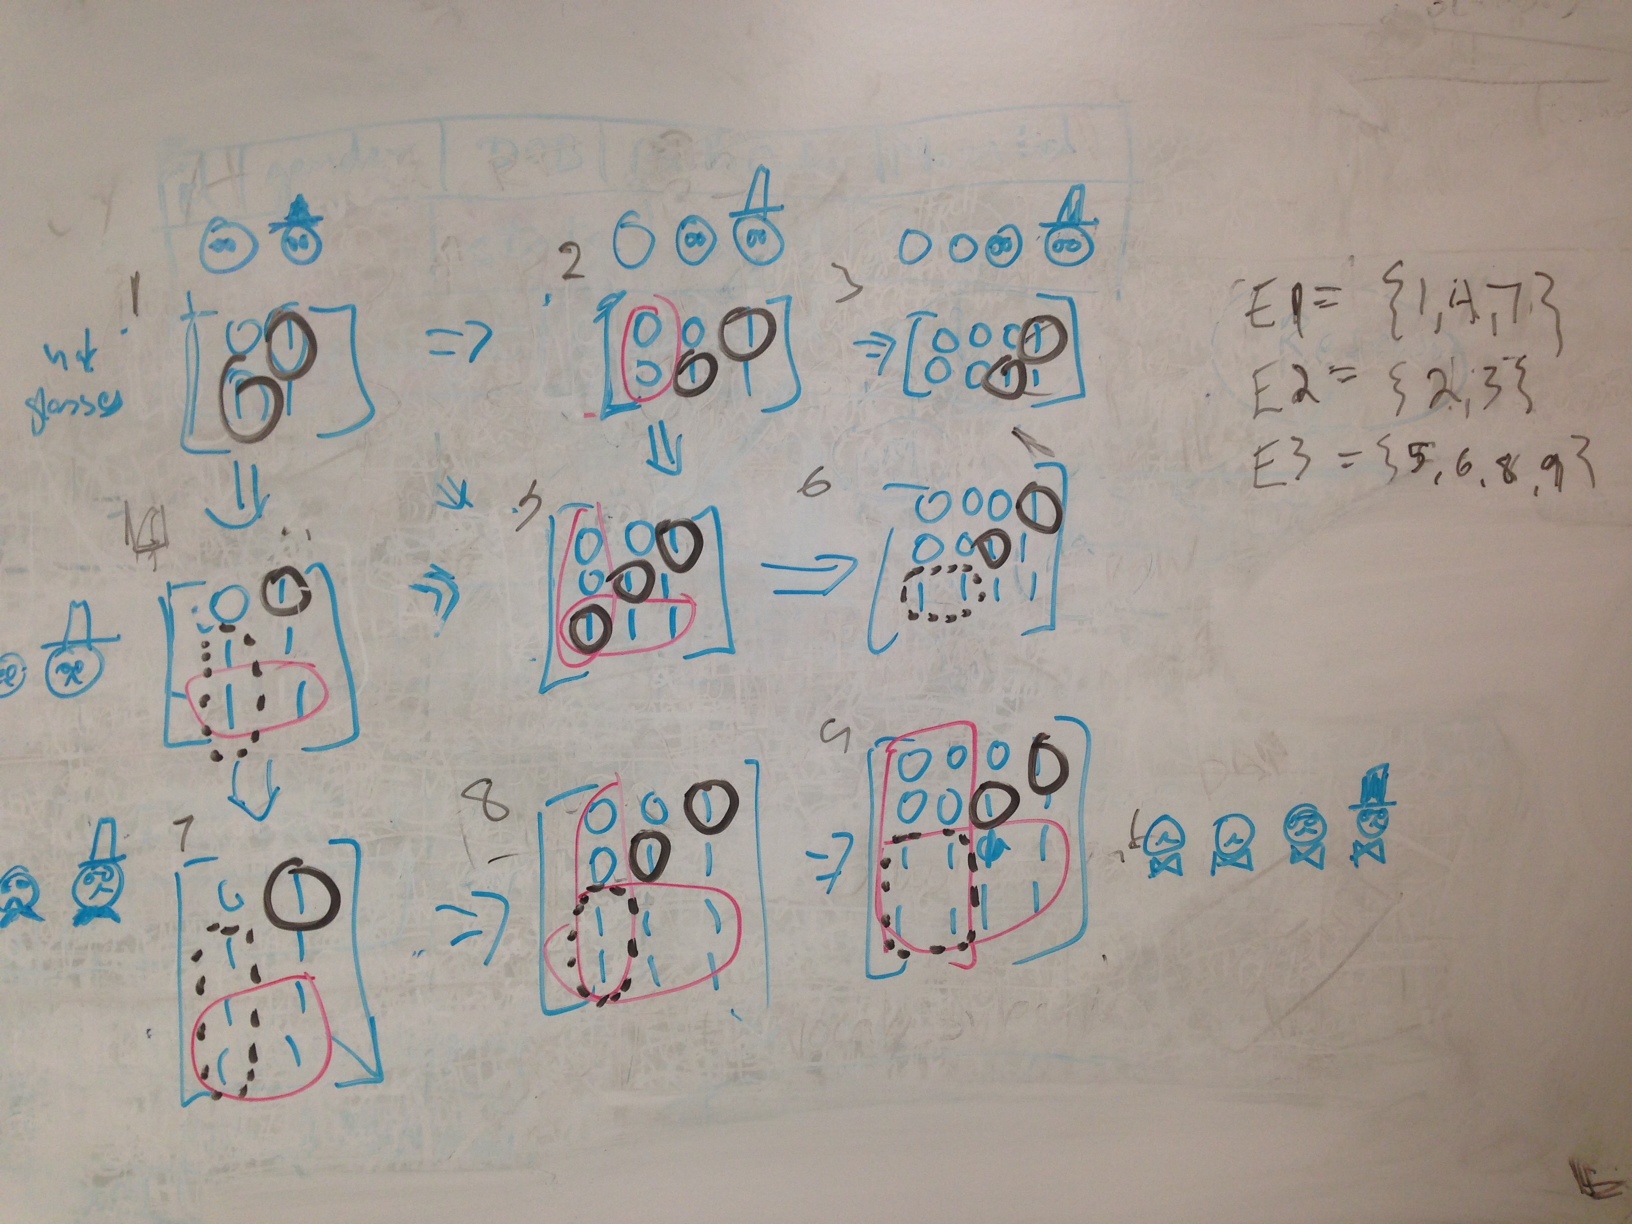 1
2
3
hat
glasses
0 1
1 1
=>
0 0 1
0 1 1
=>
0 0 0 1
0 0 1 1
E1 = {1,4,7}
E2 = {2,3}
E3 = {5,6,8,9}
4
5
6
0 1
1 1
1 1
=>
0 0 1
0 1 1
1 1 1
=>
0 0 0 1
0 0 1 1
1 1 1 1
7
8
9
0 1
1 1
1 1
1 1
=>
0 0 1
0 1 1
1 1 1
1 1 1
=>
0 0 0 1
0 0 1 1
1 1 1 1
1 1 1 1